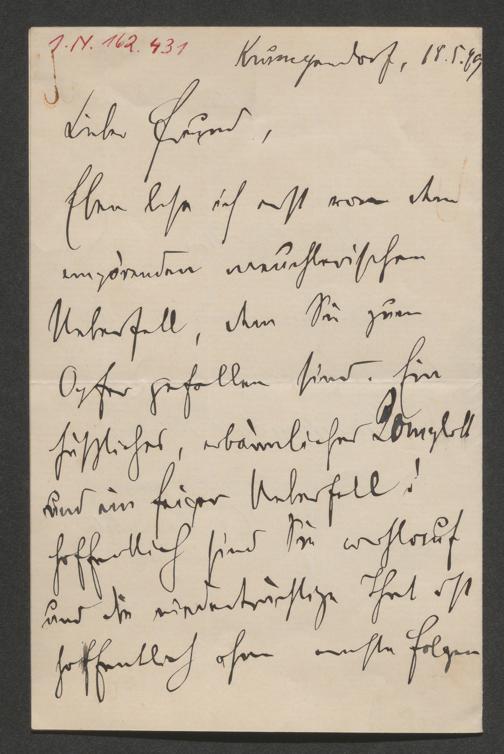 J.N. 162.431
Krumpendorf, 18.5.99
Lieber Freund,
Eben lese ich erst von dem
empörenden meuchlerischen
Ueberfall, dem Sie zum
Opfer gefallen sind. Ein
häßliches, erbärmliches Komplott
und ein feiger Ueberfall!
Hoffentlich sind Sie wohlauf
und die niederträchtige That ist
hoffentlich ohne Folgen